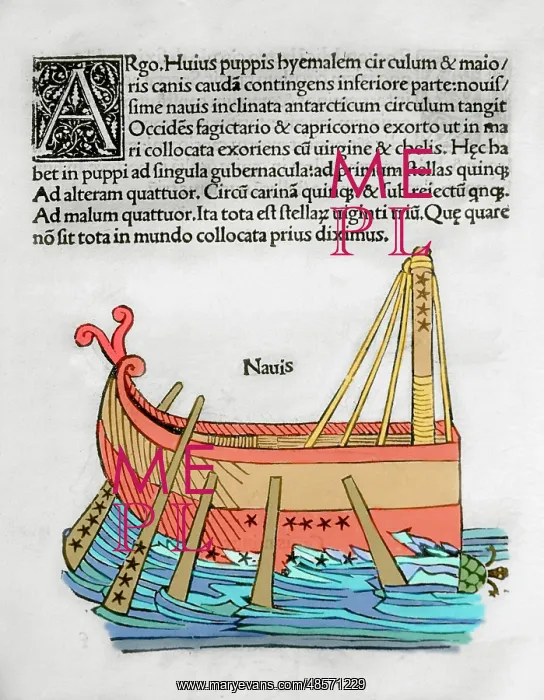 ARgo. Huius puppis hyemalem circulum & maio/
ris canis caudã contingens inferiore parte: nouis/
sime nauis inclinata antarcticum circulum tangit
Occidẽs sagictario & capricorno exorto ut in ma
ri collocata exoriens cũ uirgine & chelis. Hęc ha
bet in puppi ad singula gubernacula: ad primum stellas quinqꝫ
Ad alteram quattuor. Circũ carinã quinqꝫ & sub reiectũ qnqꝫ.
Ad malum quattuor. Ita tota est stellaꝝ uiginti triũ. Quę quare
nõ sit tota in mundo collocata prius diximus.
ME
PL
Nauis
ME
PL
www.maryevans.com/48571229